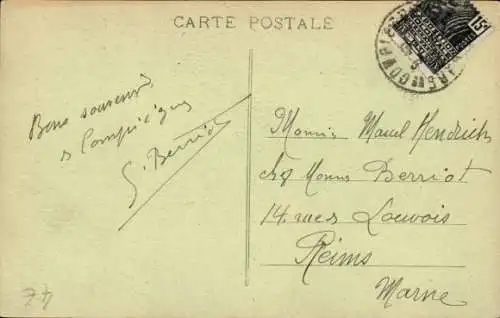 CARTE POSTALE
15c
Bons souvenirs
de Compiègne
G. Berriot
Marcel Hendricks
chez Berriot
14 rues Louvois
Reims
Marne